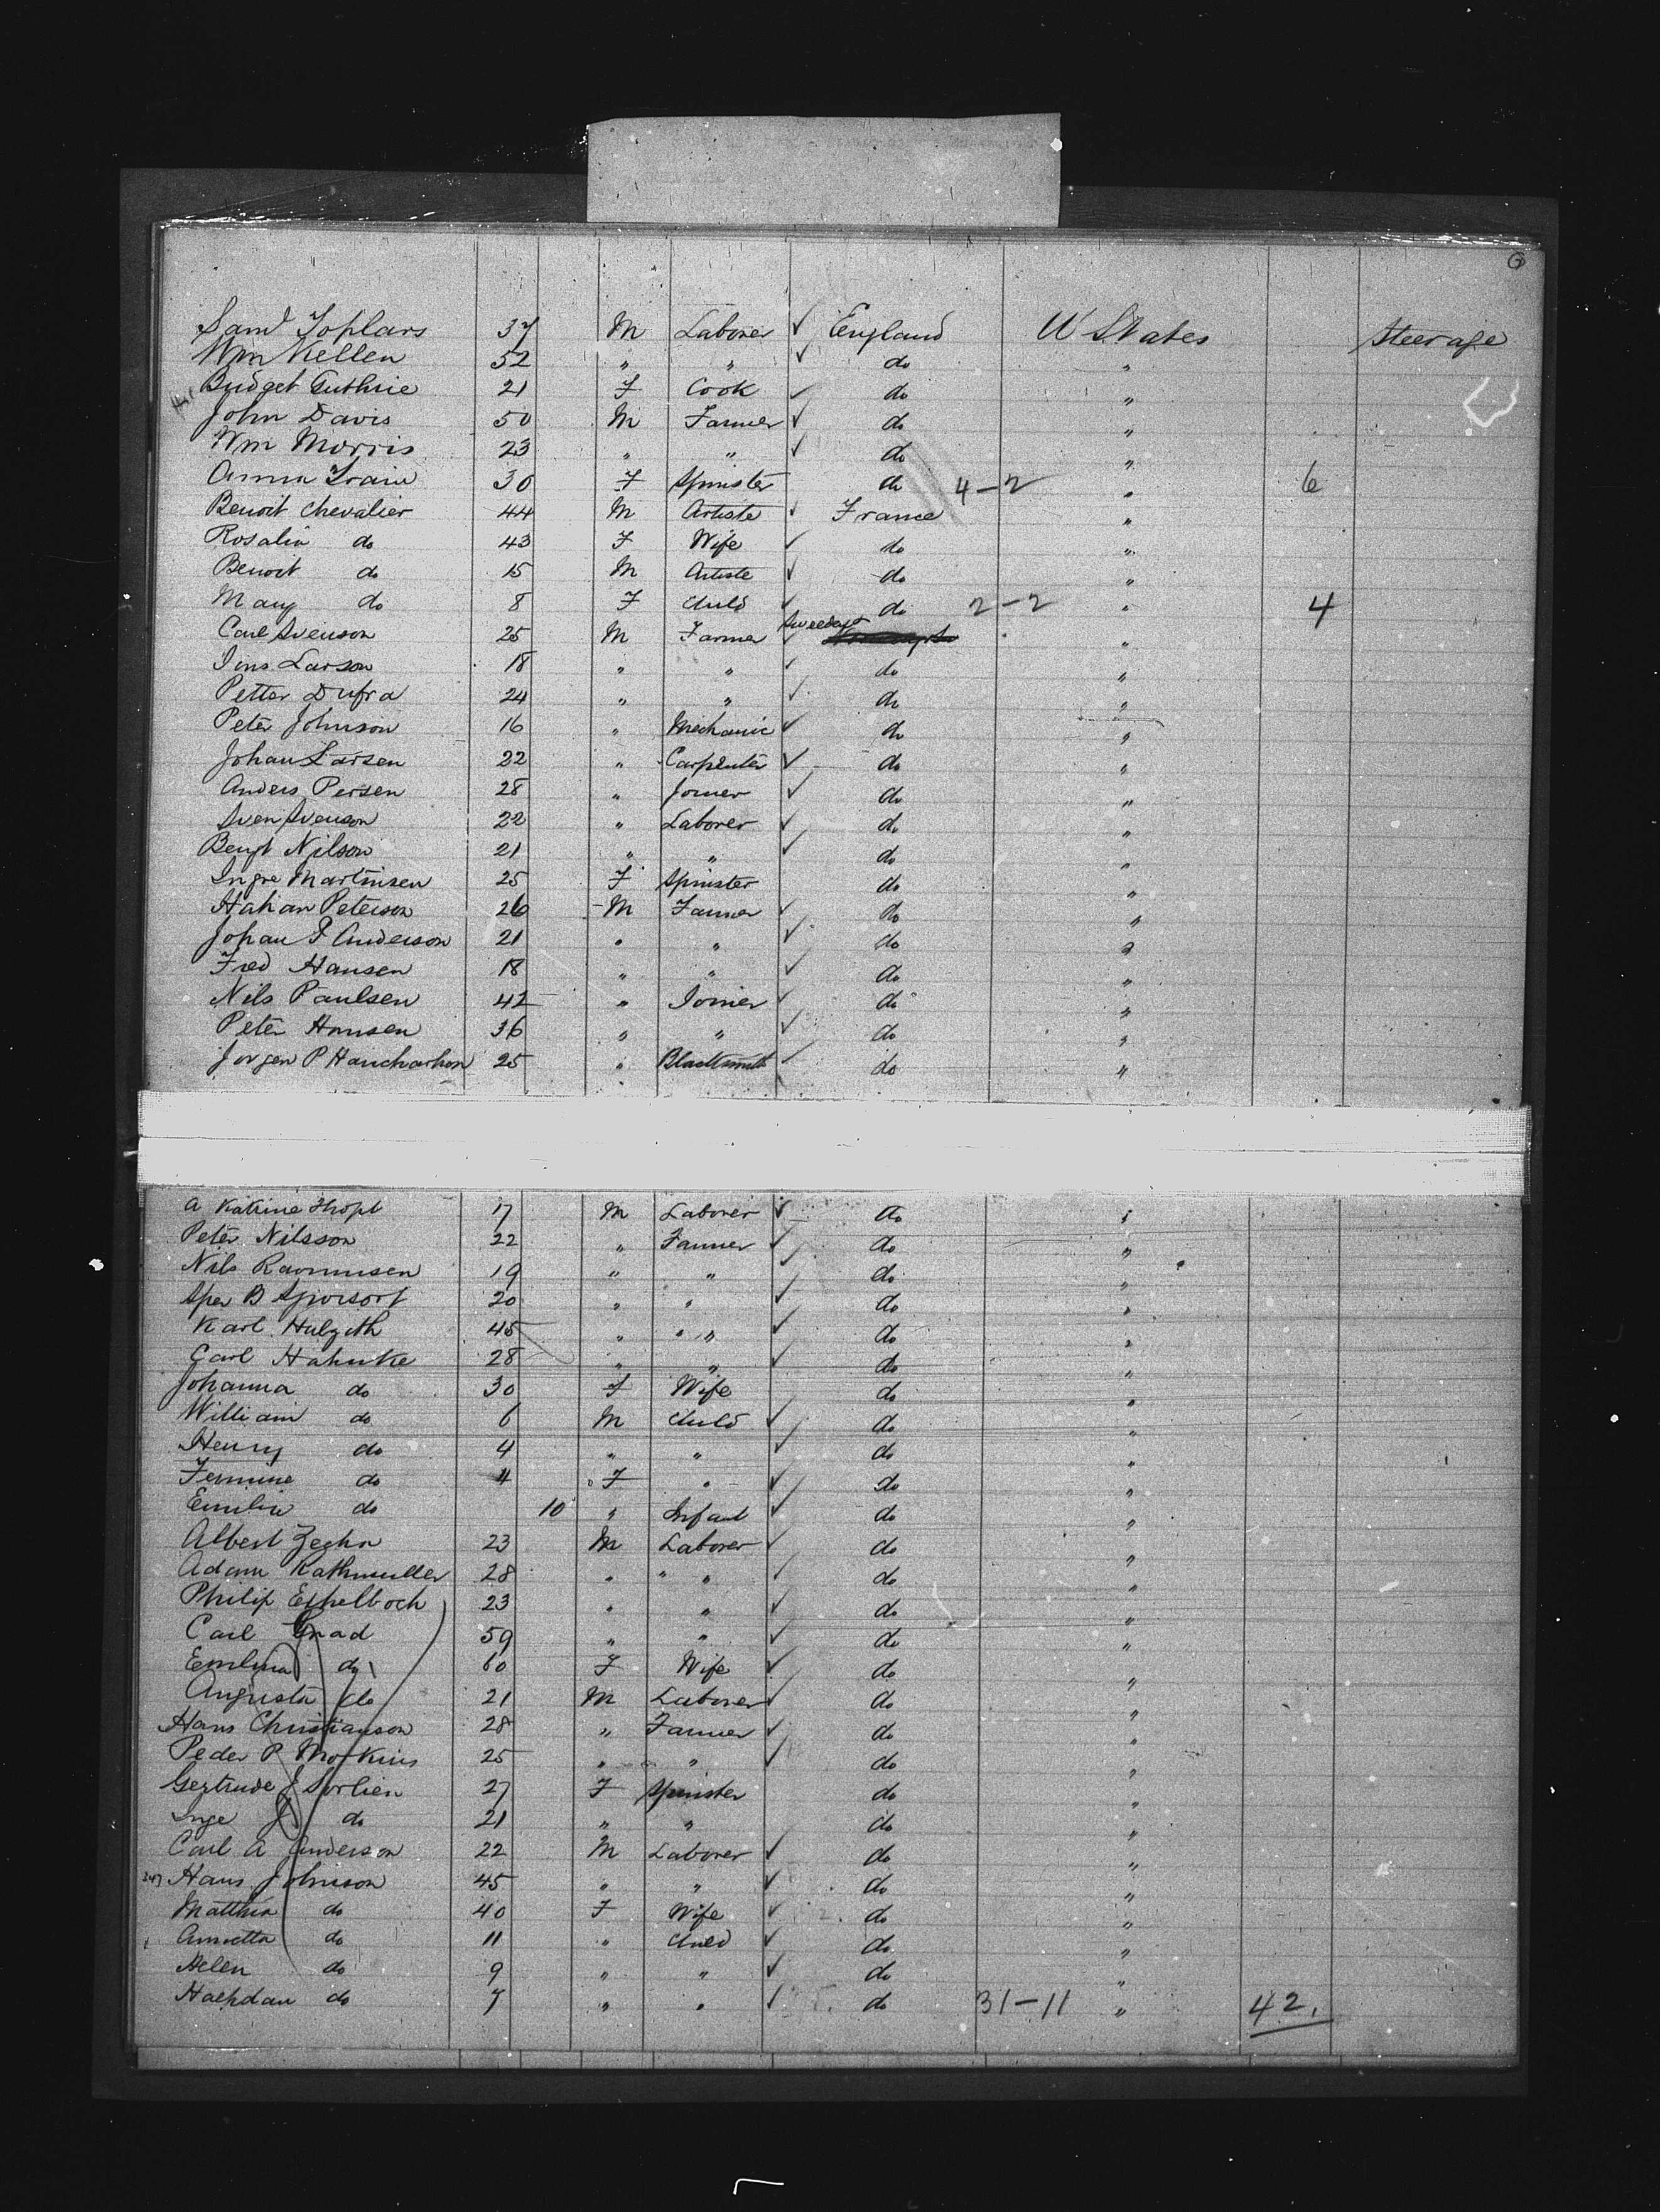 Saml Toplars 37 M Laborer ✓ England U States Steerage
Wm Kellen 52 " " ✓ do "
Bridget Guthrie 21 F Cook ✓ do "
John Davis 50 M Farmer ✓ do "
Wm Morris 23 " " ✓ do "
Anna 30 F Spinster do 4-2 " 6
Benoit Chevalier 44 M Artiste ✓ France "
Rosalia do 43 F Wife ✓ do "
Benoit do 15 M Artiste ✓ do "
Mary do 8 F Child ✓ do 2-2 " 4
Carl Svenson 25 M Farmer ✓ Sweden "
Jens Larson 18 " " ✓ do "
Petter Dufra 24 " " ✓ do "
Peter Johnson 16 " Mechanic ✓ do "
Johan Larsen 22 " Carpenter ✓ do "
Anders Persen 28 " Joiner ✓ do "
Sven Svenson 22 " Laborer ✓ do "
Bengt Nilson 21 " " ✓ do "
Ingre Martinsen 25 F Spinster do "
Hakan Peterson 26 M Farmer ✓ do "
Johan P Anderson 21 " " ✓ do "
Fred Hansen 18 " " ✓ do "
Nils Paulsen 42 " Joiner ✓ do "
Peter Hansen 36 " " ✓ do "
Jorgen P 25 " Blacksmith ✓ do "
A Katrine 17 M Laborer ✓ do "
Peter Nilsson 22 " Farmer ✓ do "
Nils Rasmusen 19 " " ✓ do "
B 20 " " ✓ do "
Karl 45 " " " ✓ do "
Carl Hahnke 28 " " ✓ do "
Johanna do 30 F Wife do "
William do 6 M Child ✓ do "
Henry do 4 " " ✓ do "
Fermine do 4 F " ✓ do "
Emilie do 10 " Infant ✓ do "
Albert Zecha 23 M Laborer ✓ do "
Adam Rathmuller 28 " " " ✓ do "
Philip 23 " " ✓ do "
Carl Gnad 59 " " ✓ do "
Emlina do 60 F Wife ✓ do "
Augusta do 21 M Laborer ✓ do "
Hans Christianson 28 " Farmer ✓ do "
Peder P 25 " " ✓ do "
Gertrude J Sorlien 27 F Spinster do "
Inge J do 21 " " do "
Carl A Anderson 22 M Laborer ✓ do "
Hans Johnson 45 " " ✓ do "
Matthia do 40 F Wife ✓ do "
Annetta do 11 " Child ✓ do "
Helen do 9 " " ✓ do "
do 7 " " ✓ do 31-11 " 42.